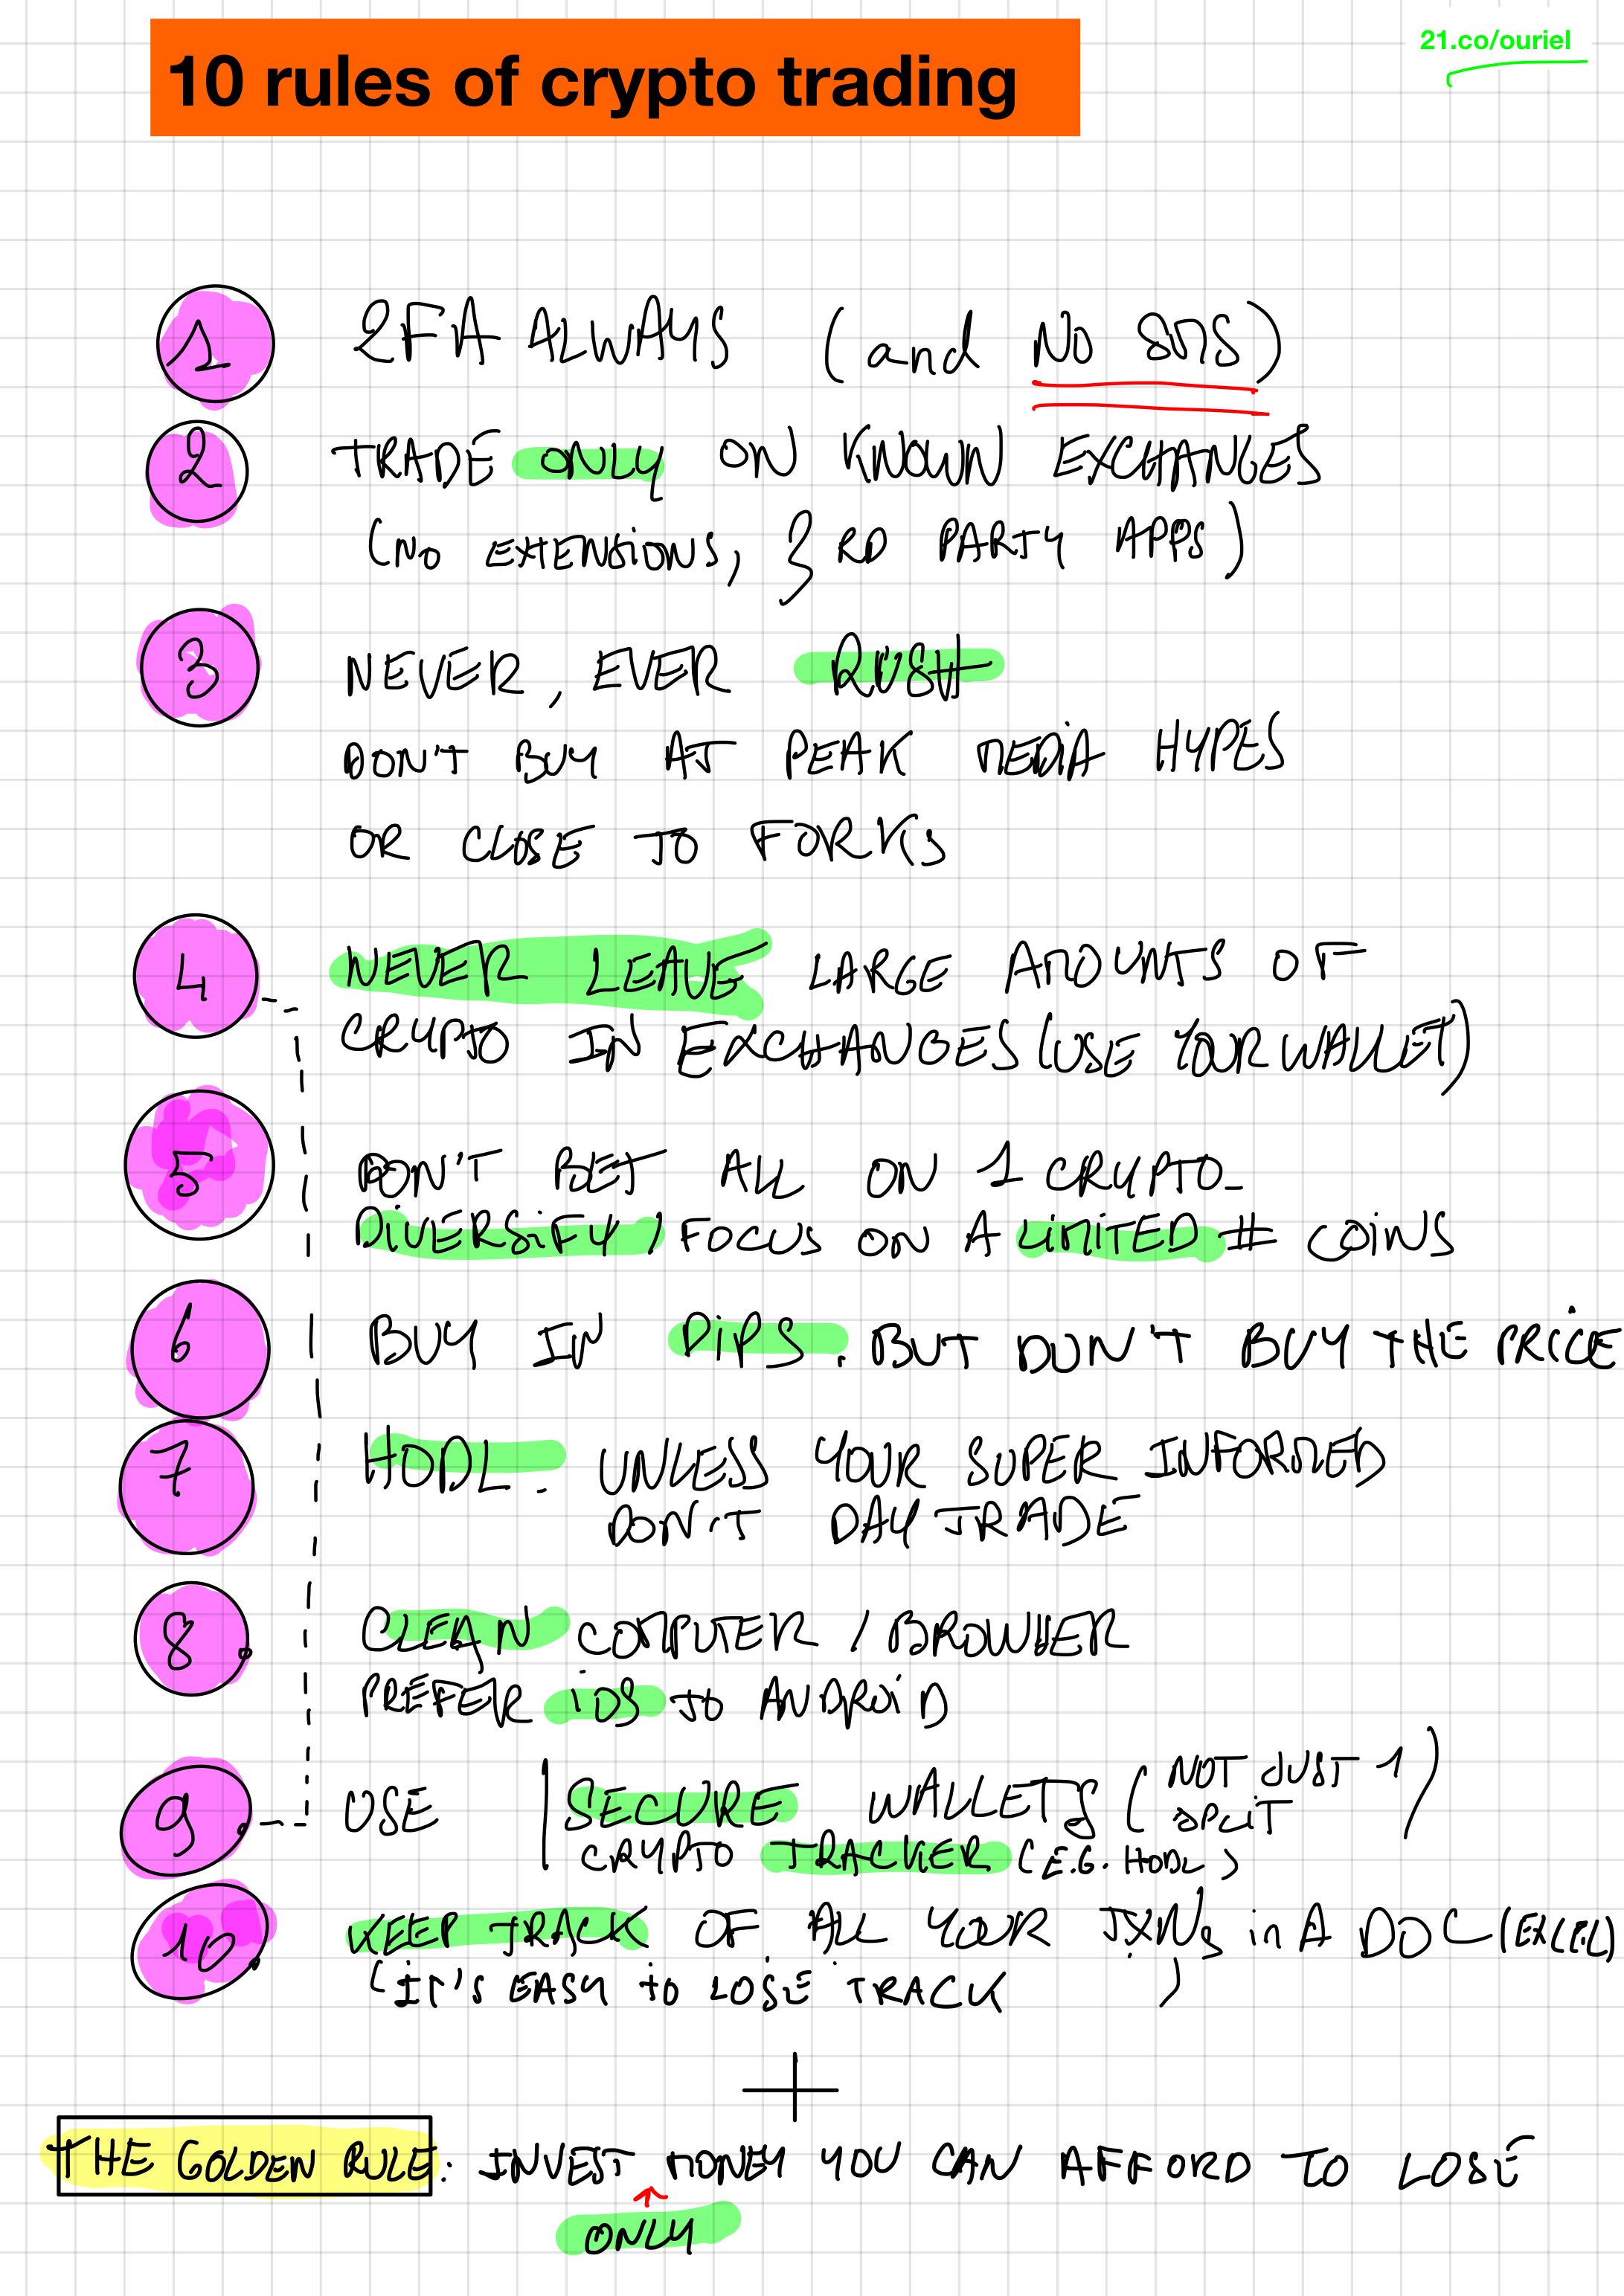 10 rules of crypto trading
21.co/ouriel
1 2FA ALWAYS (and NO SMS)
2 TRADE ONLY ON KNOWN EXCHANGES
(NO EXTENSIONS, 3RD PARTY APPS)
3 NEVER, EVER RUSH
DON'T BUY AT PEAK MEDIA HYPES
OR CLOSE TO FORKS
4 NEVER LEAVE LARGE AMOUNTS OF
CRYPTO IN EXCHANGES (USE YOUR WALLET)
5 DON'T BET ALL ON 1 CRYPTO_
DIVERSIFY / FOCUS ON A LIMITED # COINS
6 BUY IN DIPS. BUT DON'T BUY THE PRICE
7 HODL. UNLESS YOUR SUPER INFORMED
DON'T DAY TRADE
8. CLEAN COMPUTER / BROWSER
PREFER iOS TO ANDROID
9. USE SECURE WALLETS (NOT JUST 1
SPLIT)
CRYPTO TRACKER (E.G. HODL)
10. KEEP TRACK OF ALL YOUR TXNs in A DOC (EXCEL)
(IT'S EASY TO LOSE TRACK )
+
THE GOLDEN RULE: INVEST MONEY YOU CAN AFFORD TO LOSE
ONLY